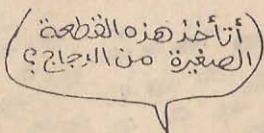 أتأخذ هذه القطعة
الصغيرة من الدجاج ؟